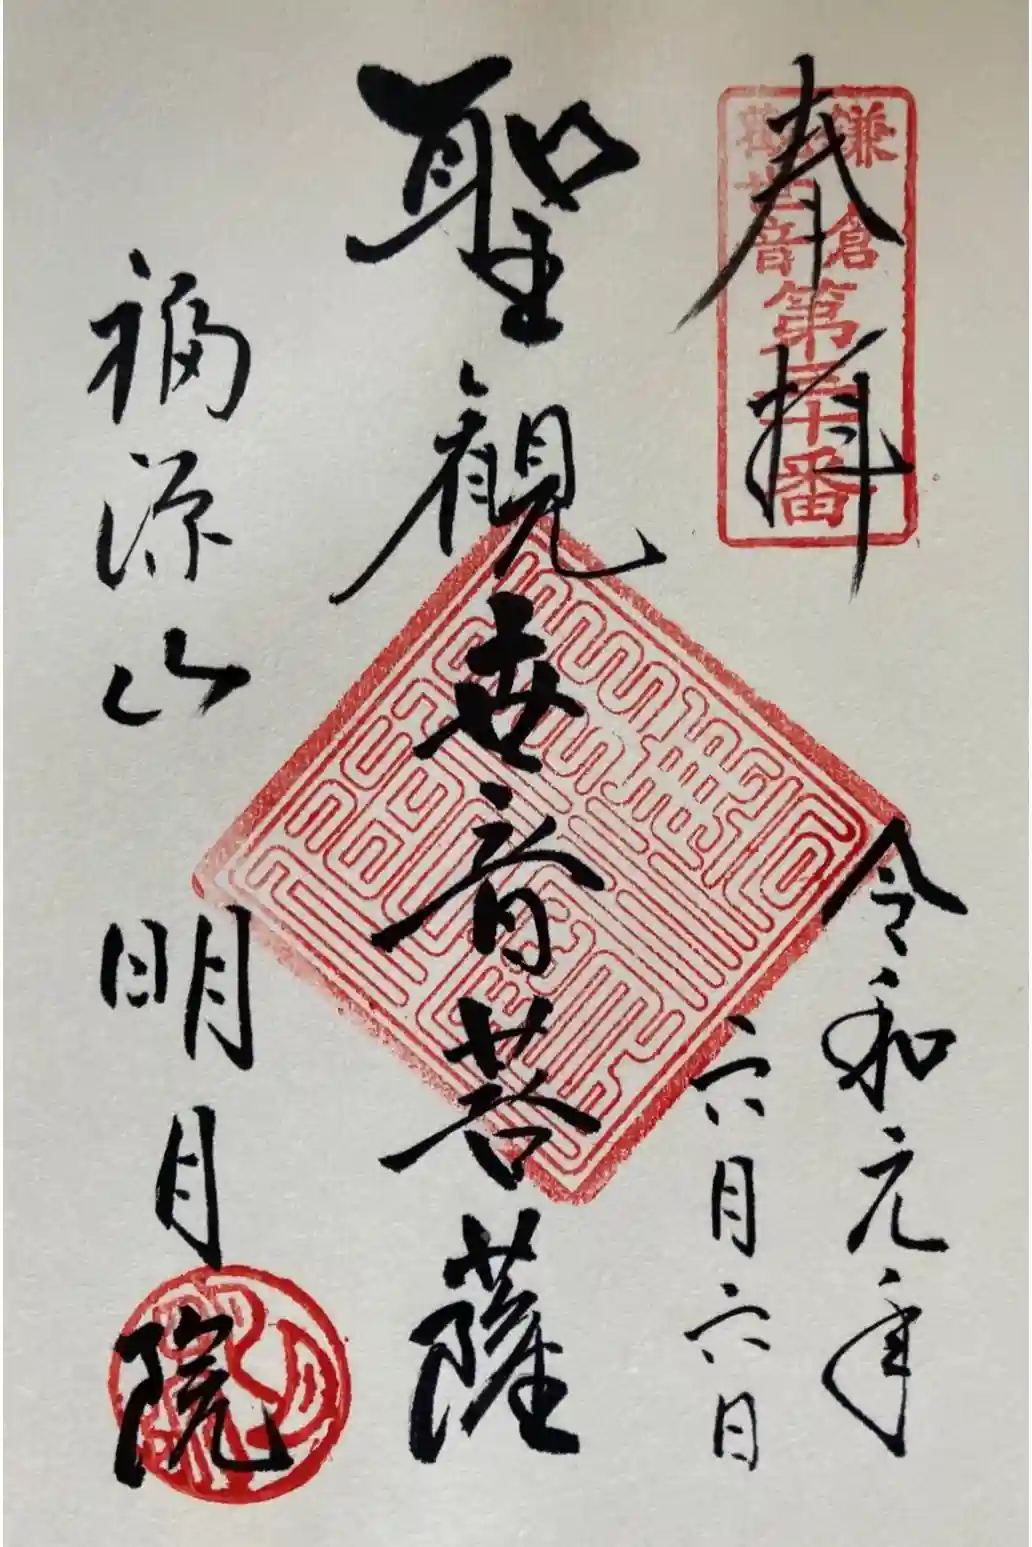 奉拝
鎌倉
觀世音
第三十番
令和元年
六月六日
聖観世音菩薩
福源山
明月院